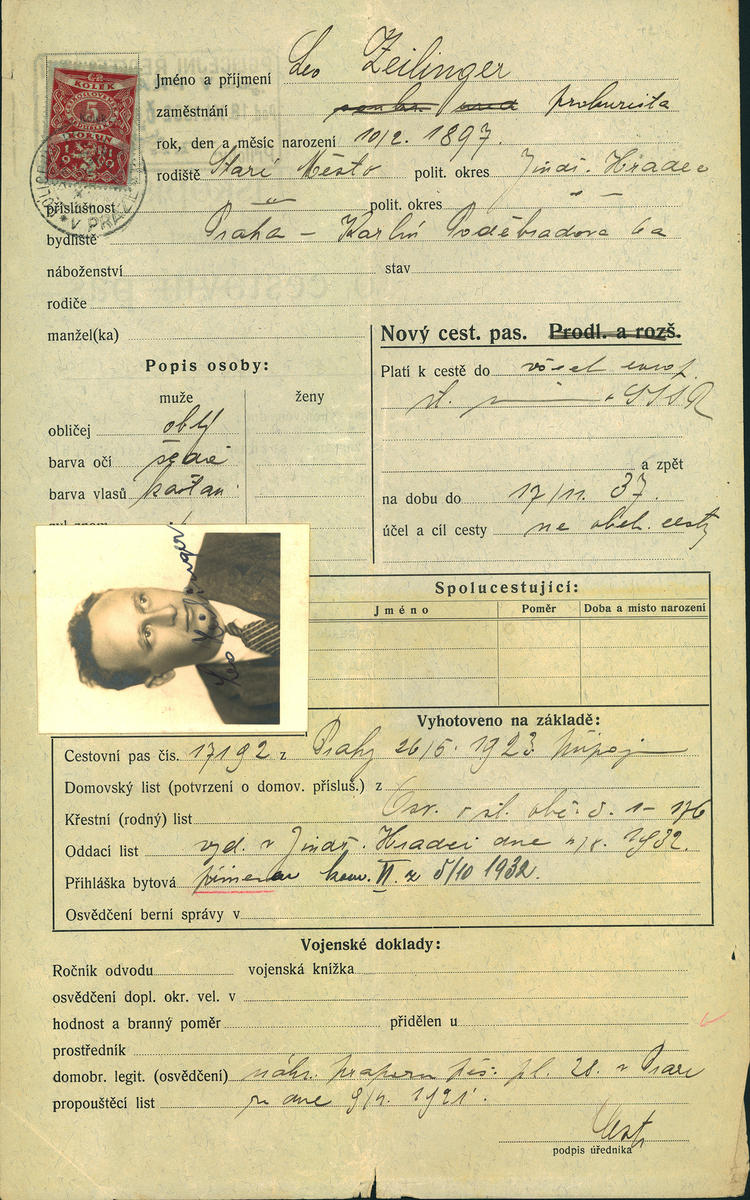 KOLEK
5
KORUN
V PRAZE
Jméno a příjmení Leo Zeilinger
zaměstnání prokurista
rok, den a měsíc narození 10/2. 1897.
rodiště Staré Město polit. okres Jindř. Hradec
příslušnost " polit. okres " —
bydliště Praha – Karlín Poděbradova 6a
náboženství stav
rodiče
manžel(ka)
Nový cest. pas. Prodl. a rozš.
Popis osoby:
Platí k cestě do všech evrop.
muže ženy
st. SSSR
obličej oblý
barva očí šedé
a zpět
barva vlasů kaštan.
na dobu do 17/11. 37.
účel a cíl cesty na obch. cesty
Leo
Spolucestující:
Jméno Poměr Doba a místo narození
Vyhotoveno na základě:
Cestovní pas čís. 17192 z Prahy 26/5. 1923.
Domovský list (potvrzení o domov. přísluš.) z
Křestní (rodný) list Osv. o st. obč. č. 1– 176
Oddací list vyd. v Jindř. Hradci dne 1932.
Přihláška bytová kom. VI. z 5/10 1932.
Osvědčení berní správy v
Vojenské doklady:
Ročník odvodu vojenská knížka
osvědčení dopl. okr. vel. v
hodnost a branný poměr přidělen u
prostředník
domobr. legit. (osvědčení) náhr. praporu pěš. pl. 28. v Praze
propouštěcí list ze dne 9/4. 1921.
podpis úředníka